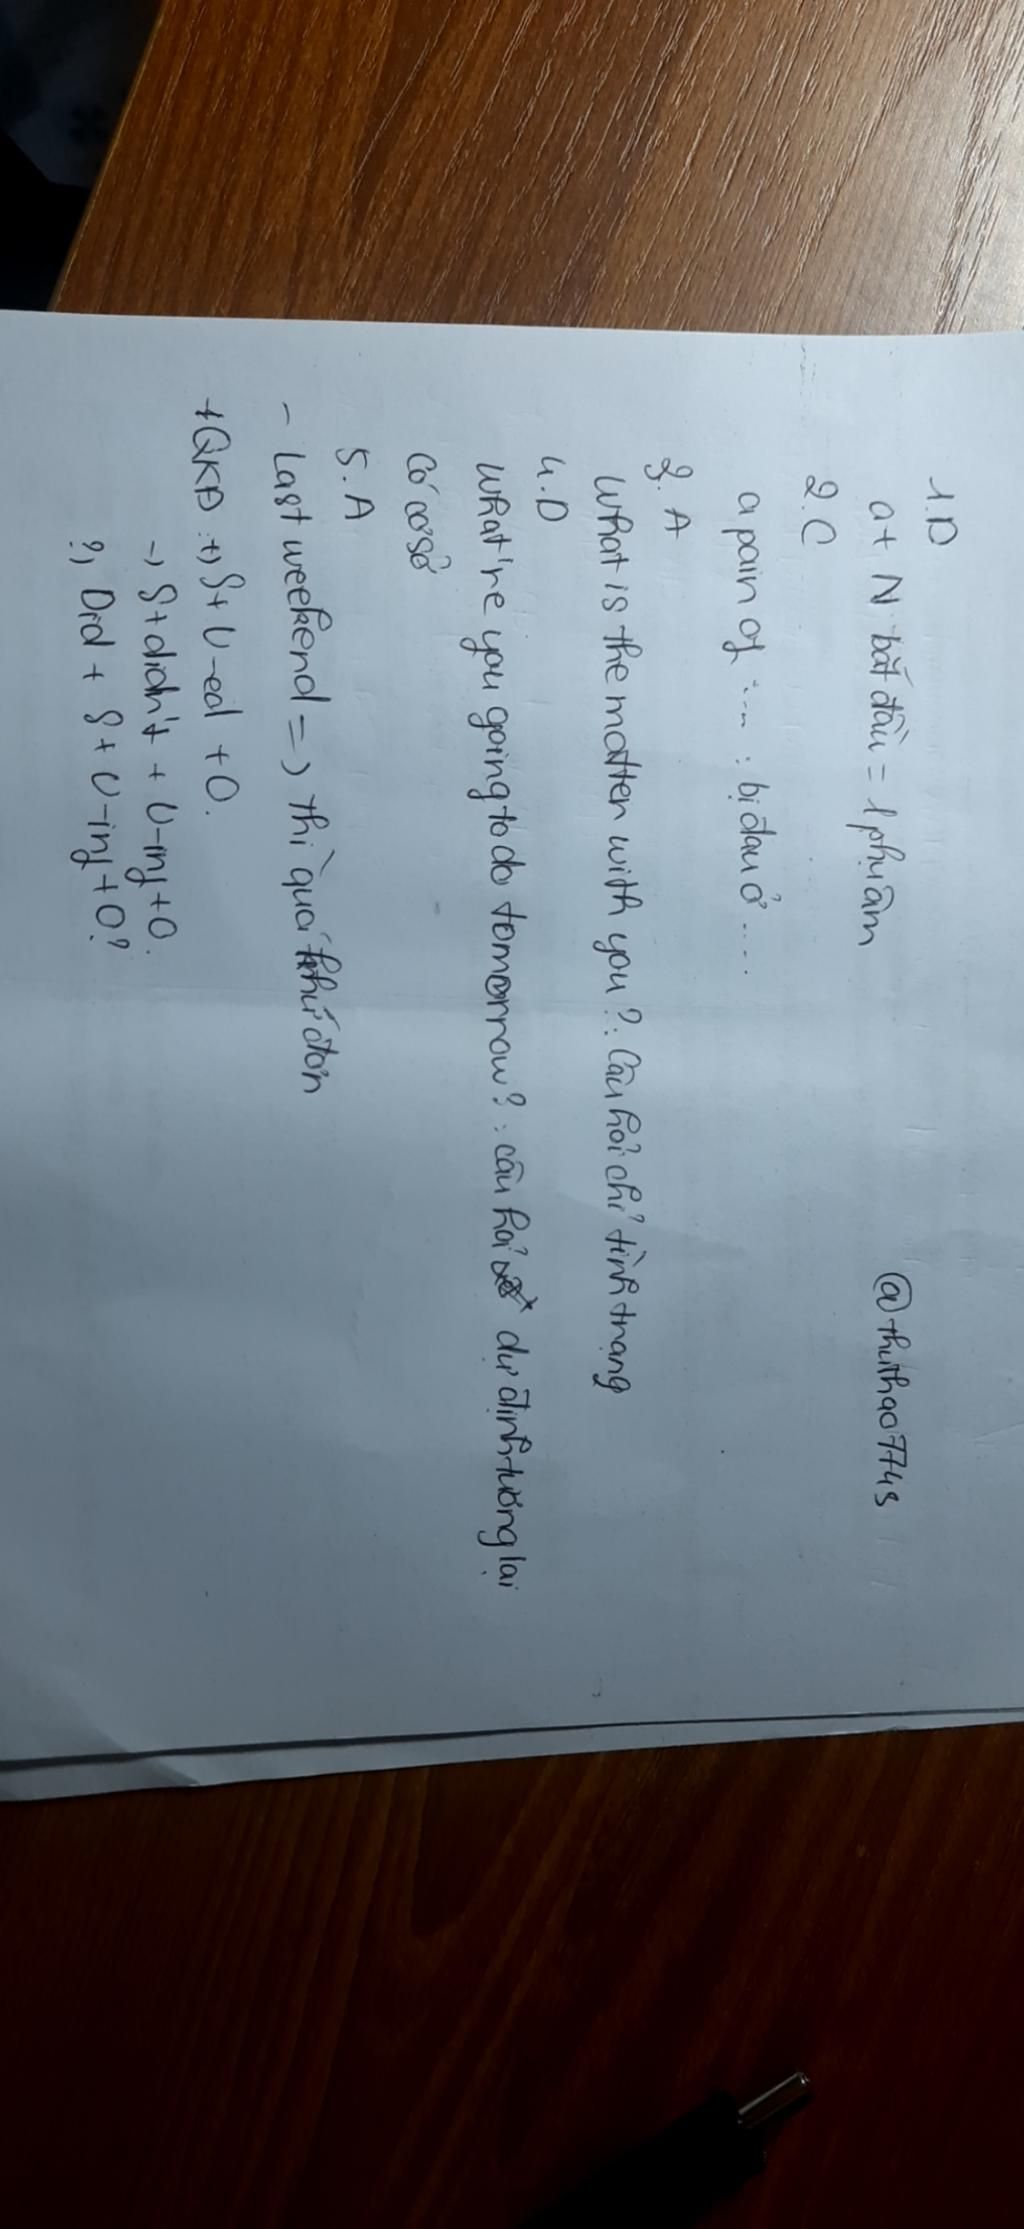 @thuthao7749
1.D
a + N bắt đầu = 1 phụ âm
2.C
a pain of .... : bị đau ở ....
3. A
What is the matter with you? : Câu hỏi chỉ tình trạng
4.D
What're you going to do tomorrow? : câu hỏi dự định tương lai
có cơ sở
5. A
- Last weekend => thì quá thứ đơn
+QKĐ : +) S + V-ed + O.
-) S + didn't + V-ing + O.
?) Did + S + V-ing + O?